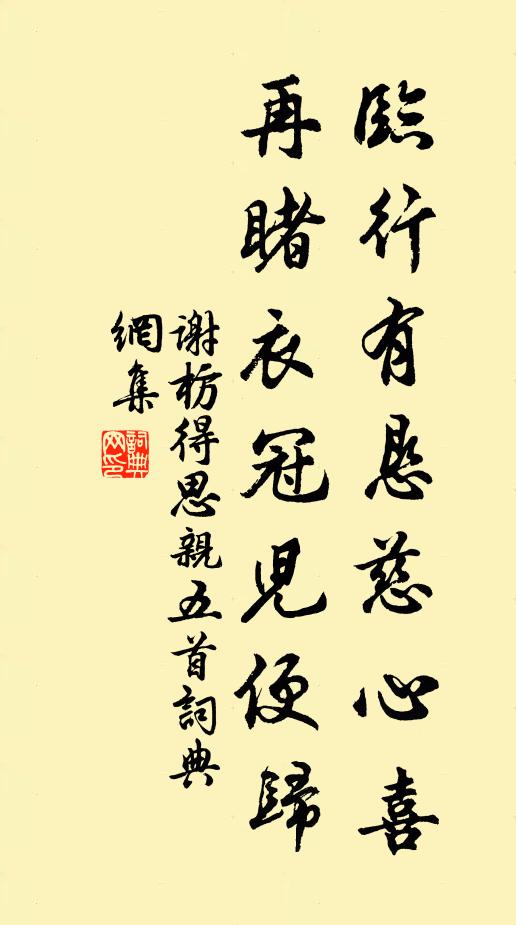 臨行有恳慈心喜
再睹衣冠兒便歸
謝枋得思親五首詞典
網集
詞典
网印